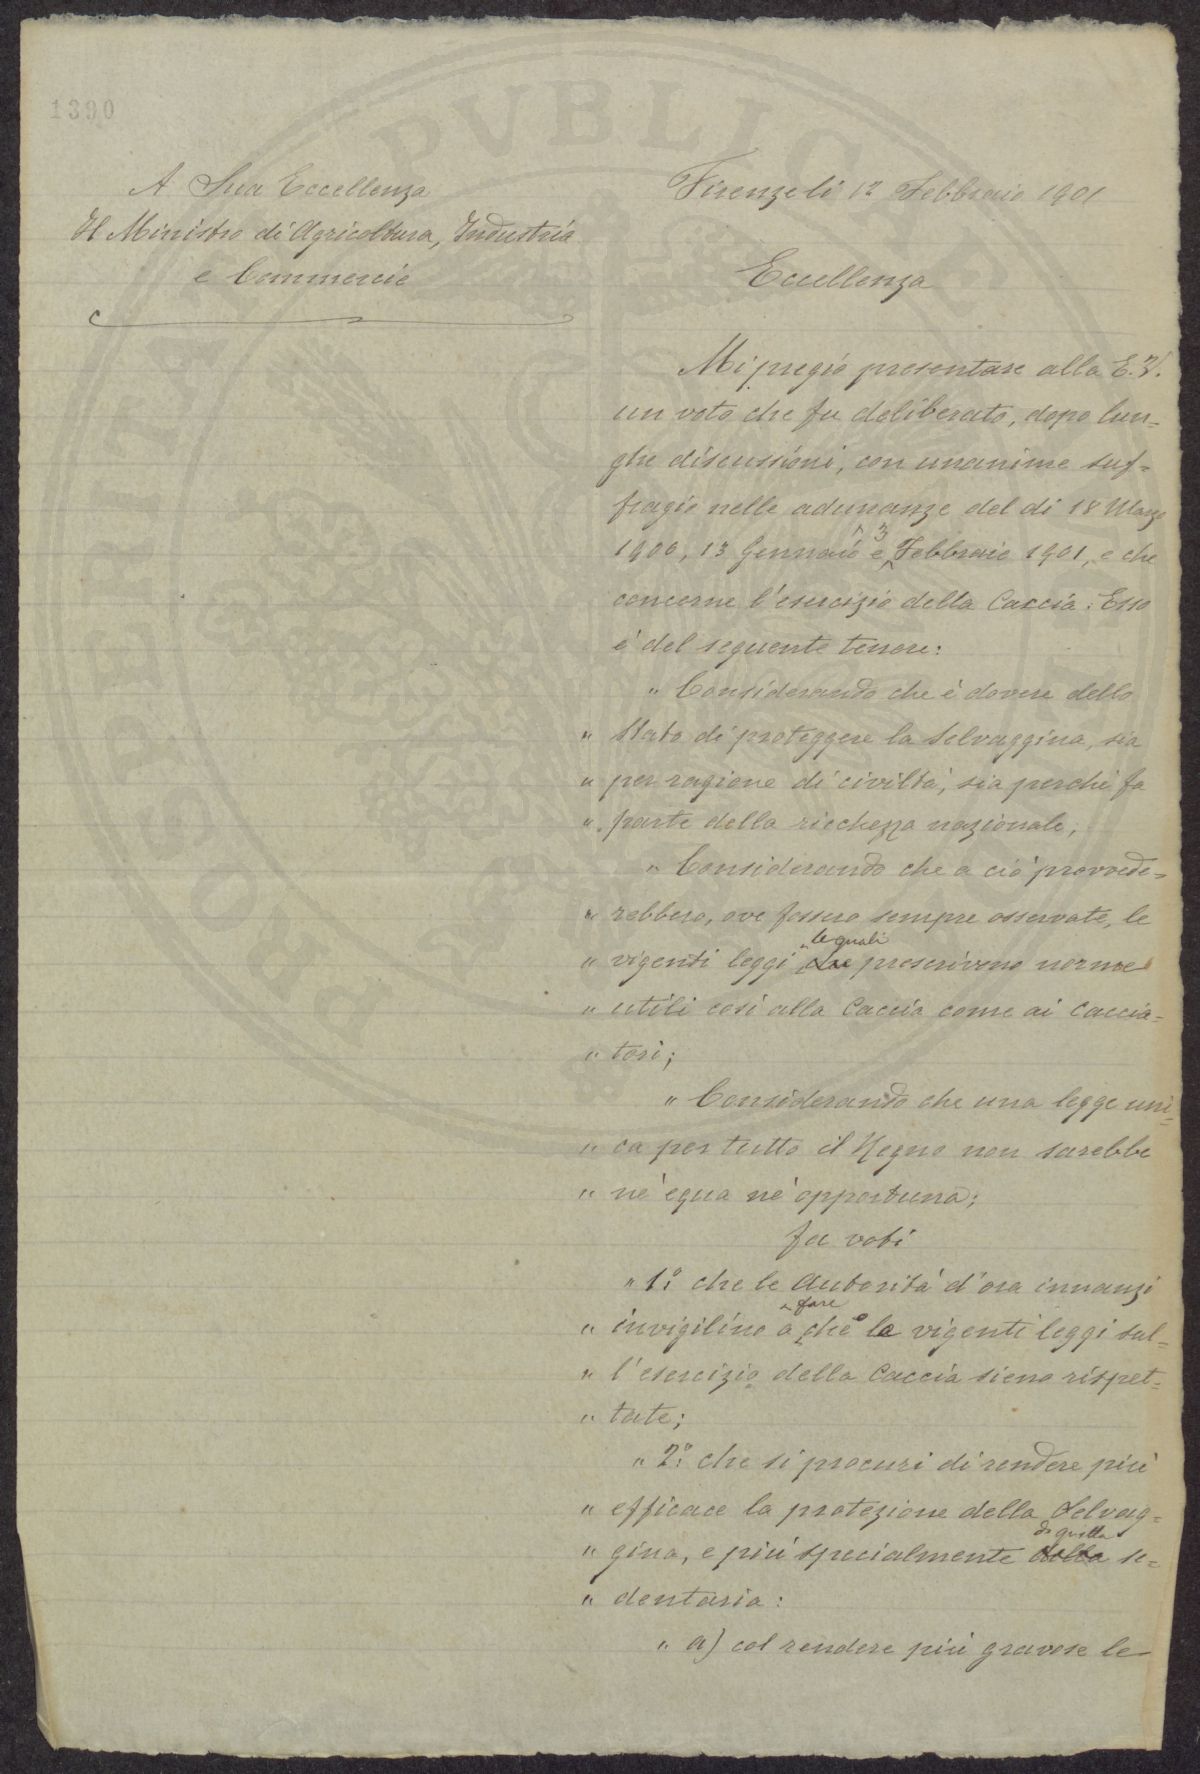 1390
A Sua Eccellenza
Il Ministro di Agricoltura, Industria
e Commercio
Firenze li 12 Febbraio 1901
Eccellenza
Mi pregio presentare alla E.V.
un voto che fu deliberato, dopo lun=
ghe discussioni, con unanime suf=
fragio nelle adunanze del dì 18 Marzo
1900, 13 Gennaio e 3 Febbraio 1901, e che
concerne l'esercizio della Caccia: Esso
è del seguente tenore:
" Considerando che è dovere dello
" Stato di proteggere la Selvaggina, sia
" per ragione di civiltà, sia perchè fa
" parte della ricchezza nazionale;
" Considerando che a ciò provvede=
" rebbero, ove fossero sempre osservate, le
le quali
" vigenti leggi che prescrivono norme
" utili così alla Caccia come ai Caccia=
" tori;
" Considerando che una legge uni=
" ca per tutto il Regno non sarebbe
" nè equa nè opportuna;
fa voti
" 1º: che le Autorità d'ora innanzi
fare
" invigilino a che le vigenti leggi sul=
" l'esercizio della Caccia sieno rispet=
" tate;
" 2º: che si procuri di rendere più
" efficace la protezione della Selvag=
di quella
" gina, e più specialmente della se=
" dentaria:
" a) col rendere più gravose le
PVBLICE